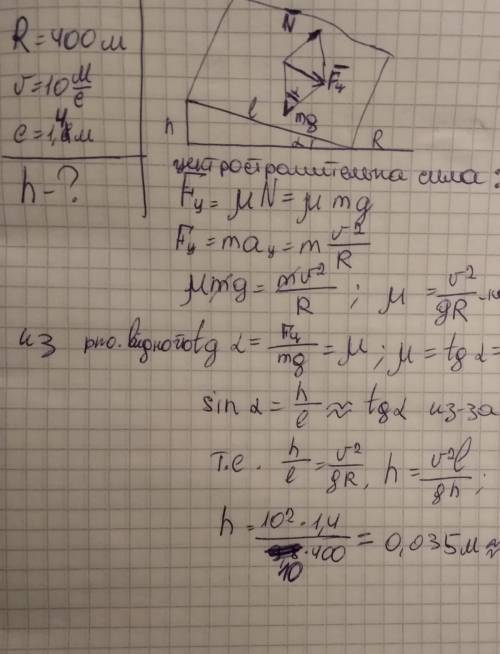 R = 400 м
v = 10 м/с
l = 1,4 м
h - ?
N
Fц
mg
l
h
α
R
центростремительна сила:
Fц = μN = μmg
Fц = maц = m v²/R
μmg = mv²/R ; μ = v²/gR
из рис. видно tg α = Fц/mg = μ ; μ = tg α =
sin α = h/l ≈ tg α из-за
т.е. h/l = v²/gR, h = v²l/gh ;
h = 10² · 1,4 / 10 · 400 = 0,035 м ≈